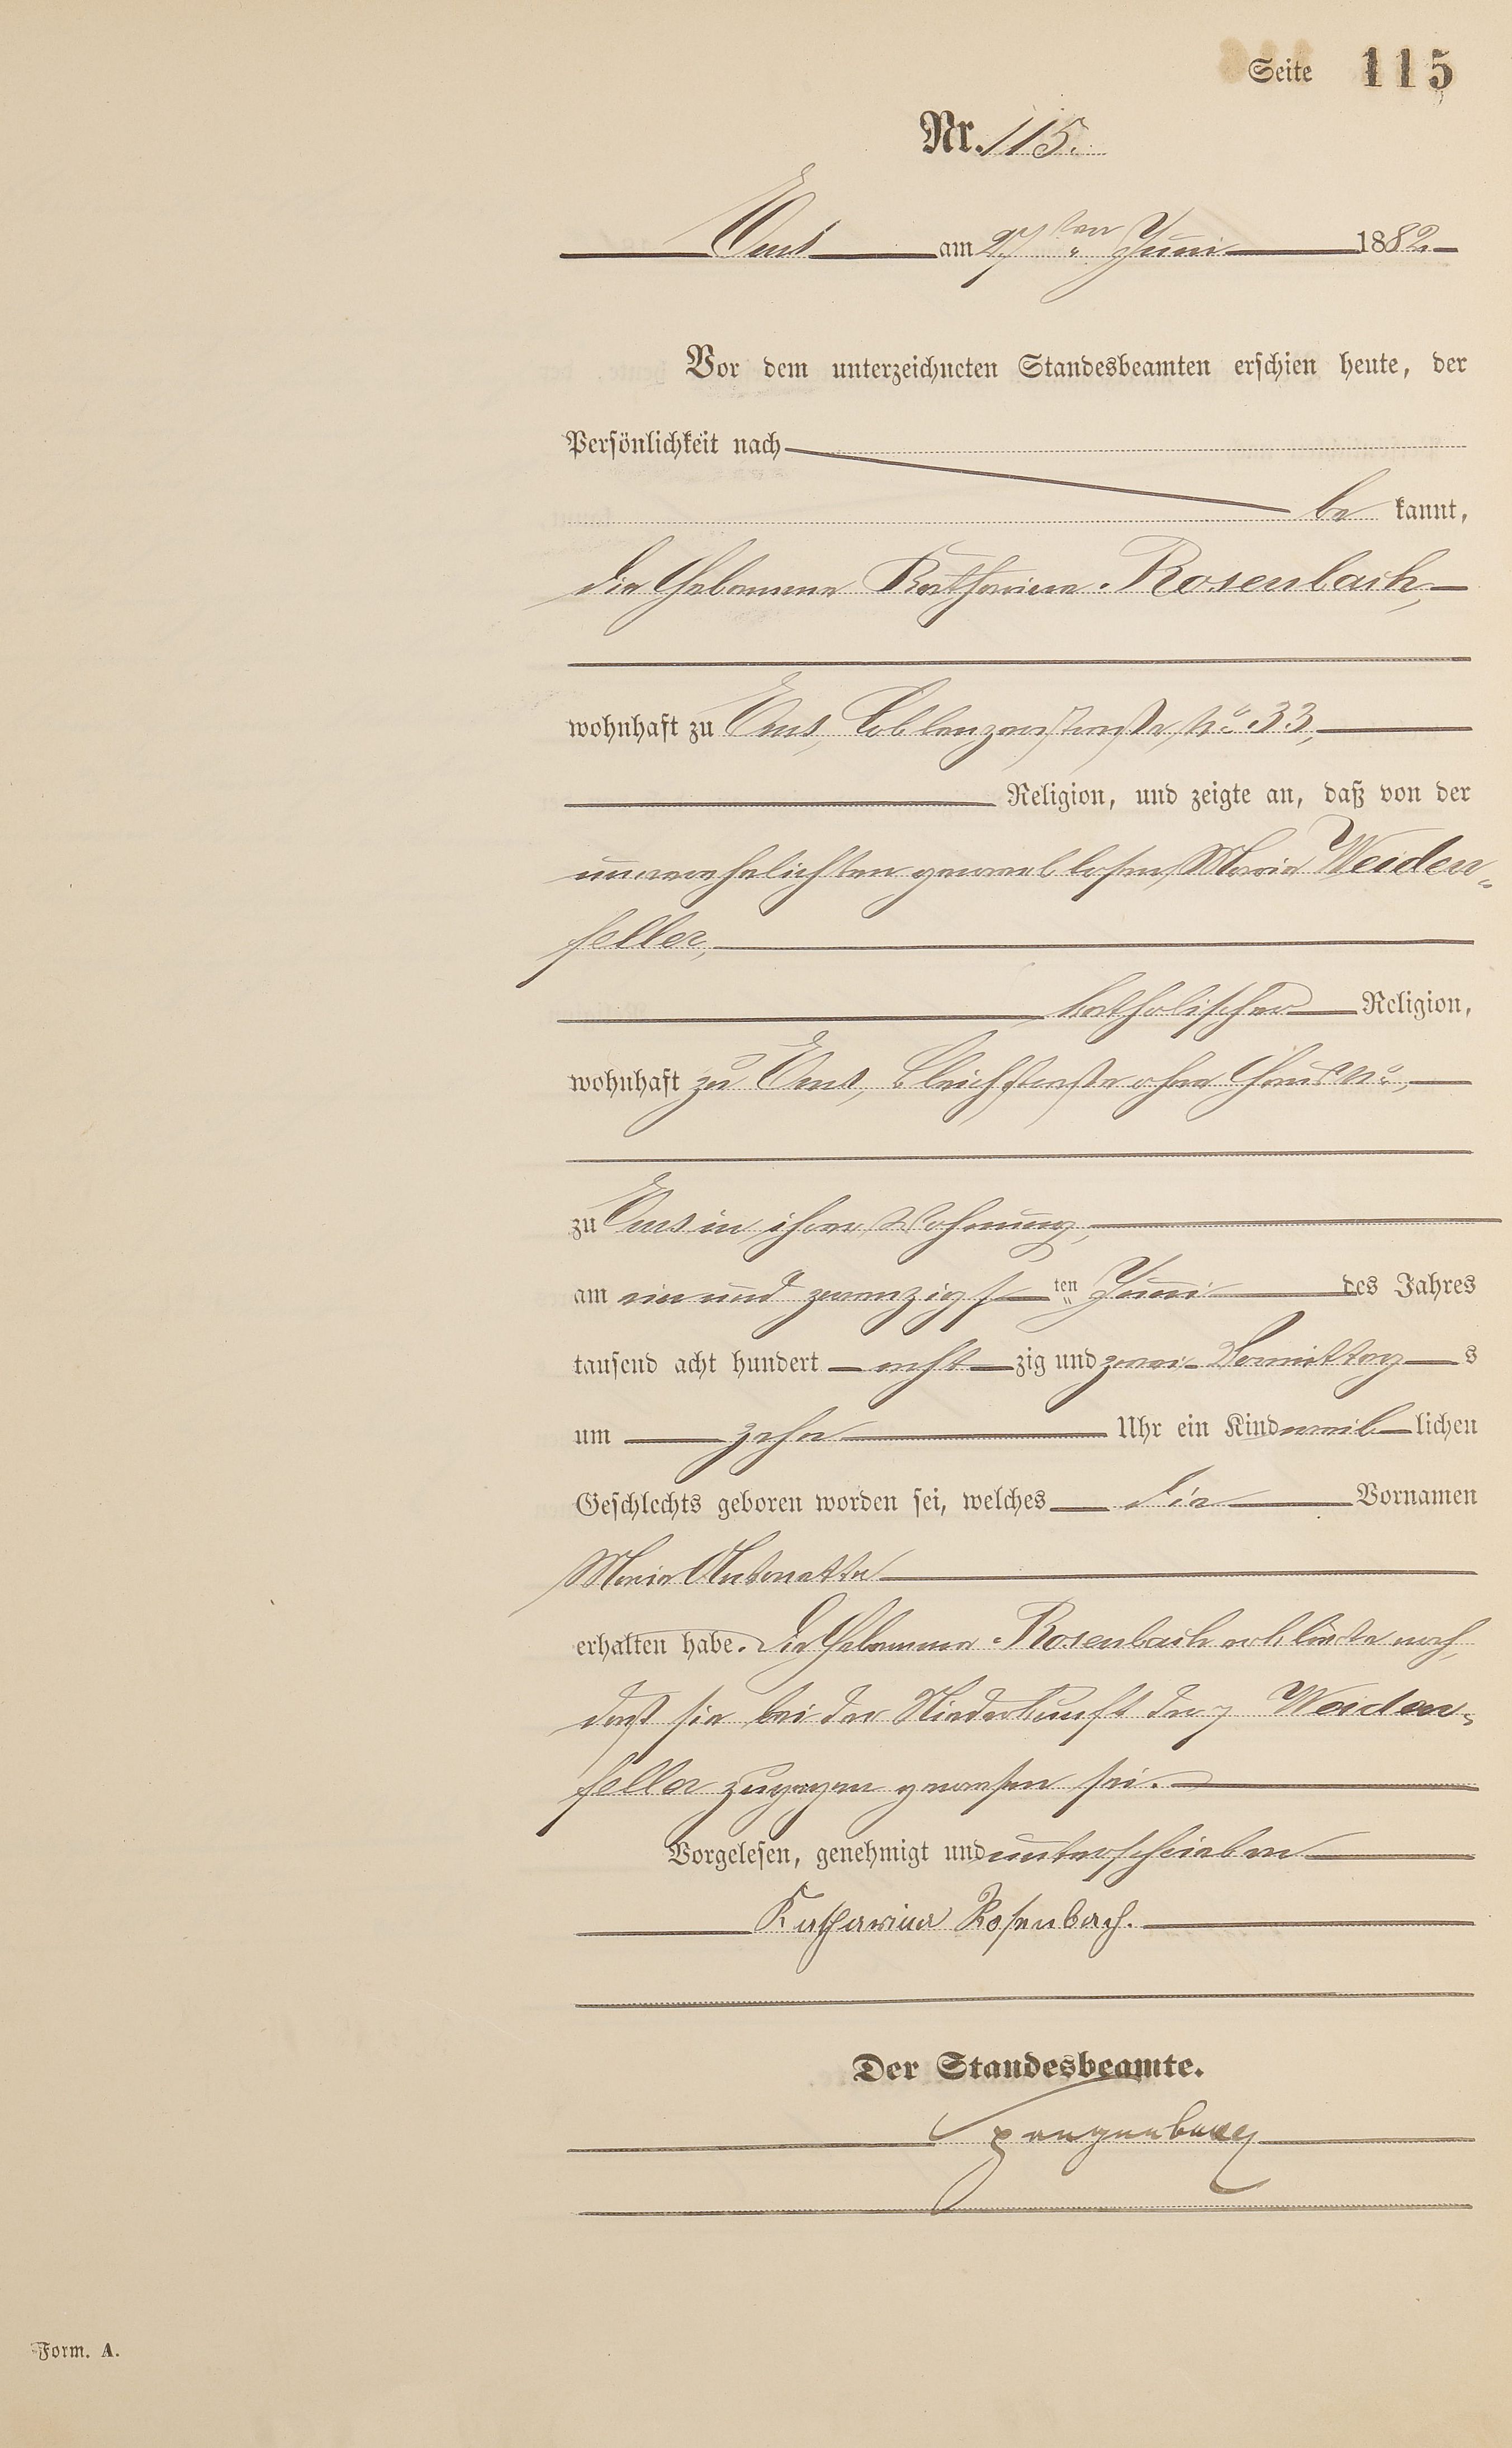 Seite 115
Nr. 115.
Ems am 27ten Juni 1882
Vor dem unterzeichneten Standesbeamten erschien heute, der
Persönlichkeit nach
be kannt,
die Hebamme Katharina Rosenbach,
wohnhaft zu Ems, Coblenzerstraße, No 33,
Religion, und zeigte an, daß von der
unverehelichten gewerblosen Maria Weiden-
feller,
katholischer Religion,
wohnhaft zu Ems, Bleichstraße ohne Haus No,
zu Ems in ihrer Wohnung,
am ein und zwanzigsten Juni des Jahres
tausend acht hundert achtzig und zwei Vormittags
um zehn Uhr ein Kind weiblichen
Geschlechts geboren worden sei, welches die Vornamen
Maria Antonetta
erhalten habe. Die Hebamme Rosenbach erklärte noch,
daß sie bei der Niederkunft der Weiden-
feller zugegen gewesen sei.
Vorgelesen, genehmigt und unterschrieben
Katharina Rosenbach.
Der Standesbeamte.
Spangenberg
Form. A.